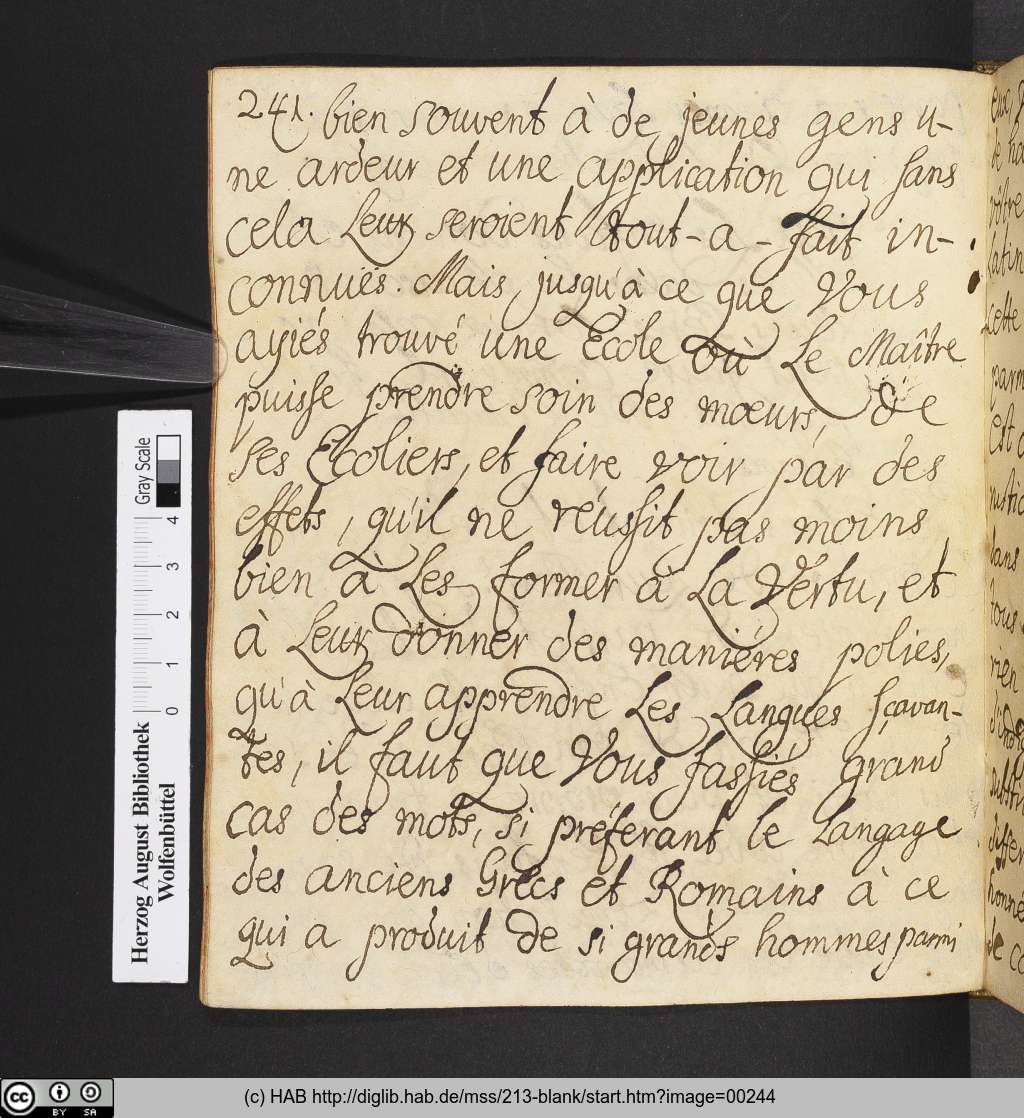 241. bien souvent à de jeunes gens u-
ne ardeur et une application qui sans
cela Leur seroient tout-a-fait in-
connuës. Mais, jusqu'à ce que Vous
ayiés trouvé une Ecole où Le Maître
puisse prendre soin des mœurs, de
ses Ecoliers, et faire voir par des
effets, qu'il ne réussit pas moins
bien à Les former à La Vertu, et
à Leur donner des maniéres polies,
qu'à Leur apprendre Les Langues sçavan-
tes, il faut que Vous fassiés grand
cas des mots, si préferant le Langage
des anciens Grecs et Romains à ce
qui a produit de si grands hommes parmi
Herzog August Bibliothek
Wolfenbüttel
Gray Scale
0 1 2 3 4
cc BY SA
(c) HAB http://diglib.hab.de/mss/213-blank/start.htm?image=00244